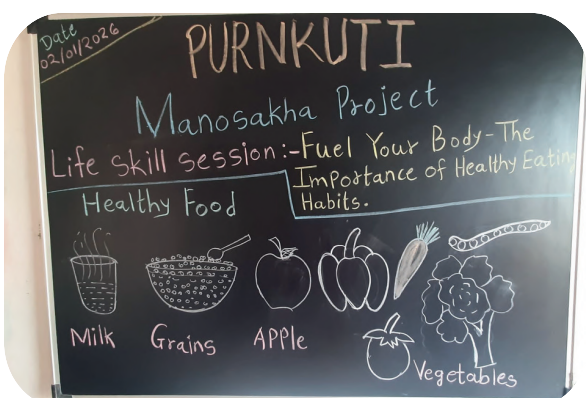 Date
02/01/2026
PURNKUTI
Manosakha Project
Life skill session:-Fuel Your Body-The
Importance of Healthy Eating
Habits.
Healthy Food
Milk
Grains
APPle
Vegetables